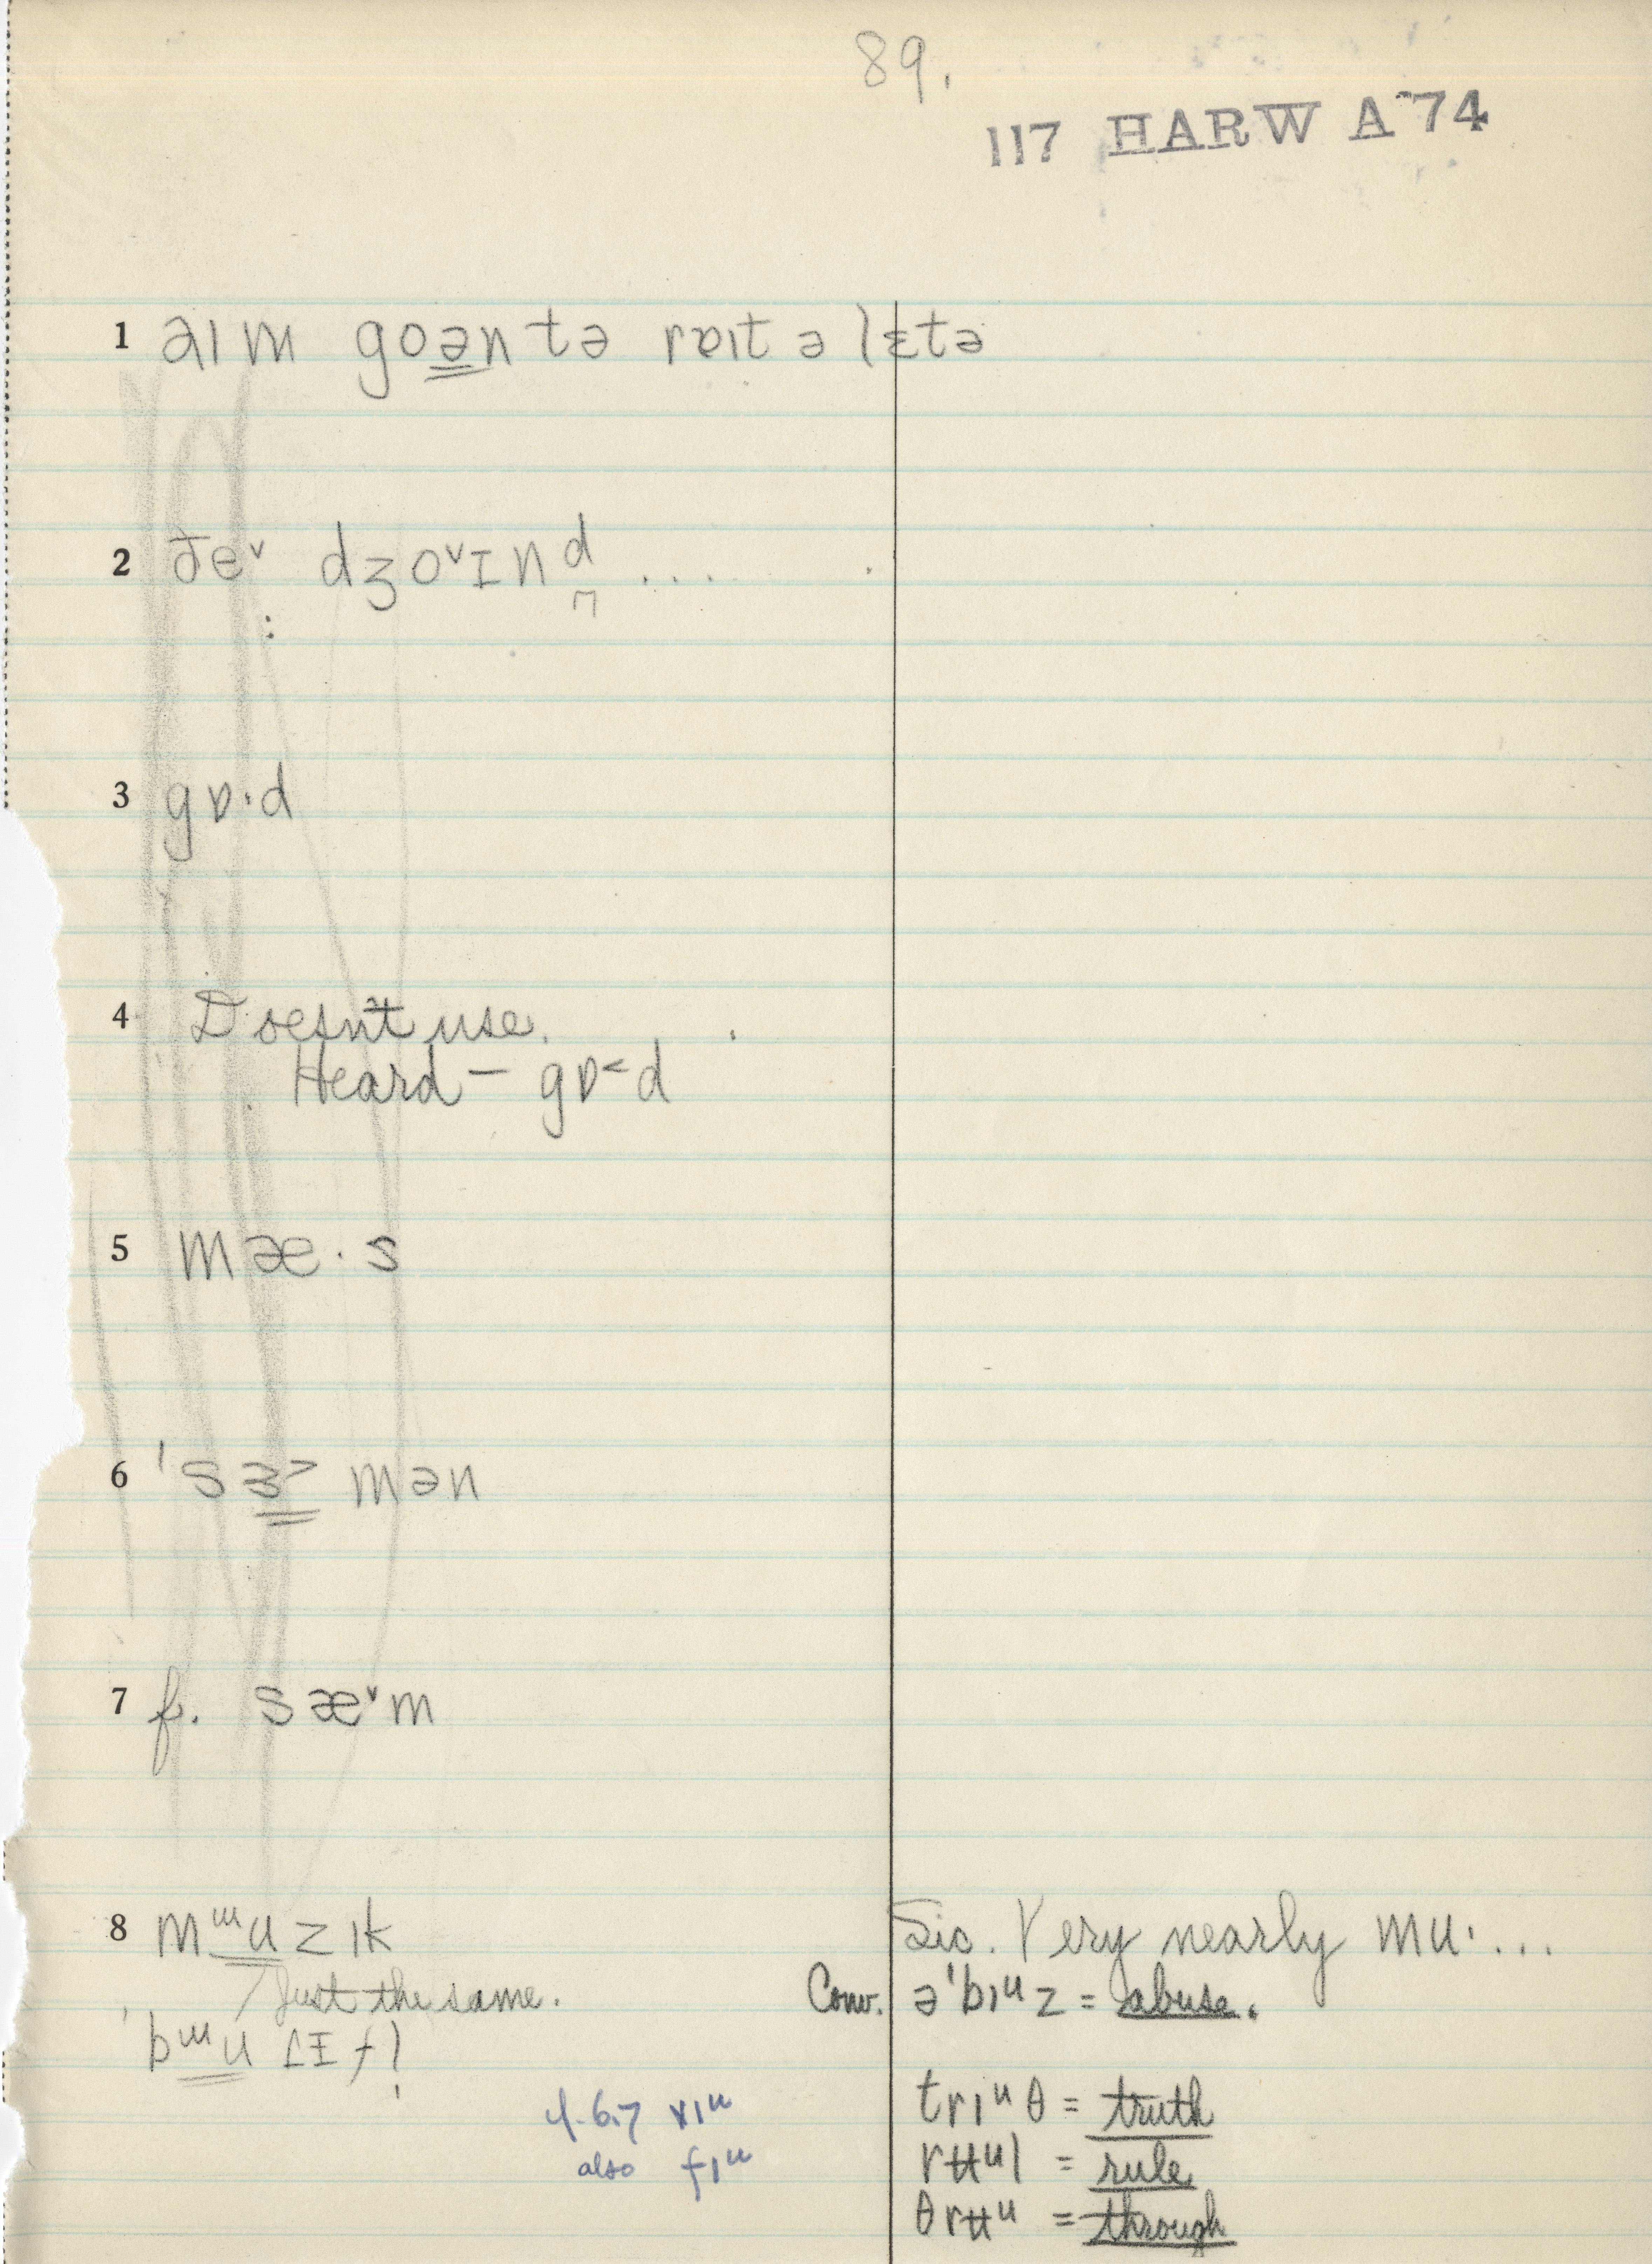 89.
117 HARW A 74
1 aɪm goən tə rɐɪt ə lɛtə
2 ðeᵛ dʒoᵛɪnd ....
3 gɒ·d
4 Doesn't use.
Heard – gɒ<d
5 mæ·s
6 'sɜ> mən
7 f. sæᵛm
8 mᵚuzɪk Sic. Very nearly mu·...
Just the same. Conv. ə'bɪᵘz = abuse.
trɪᵘθ = truth
4.6.7 rɪᵘ
rʉᵘl = rule
also fɪᵘ
θrʉᵘ = through